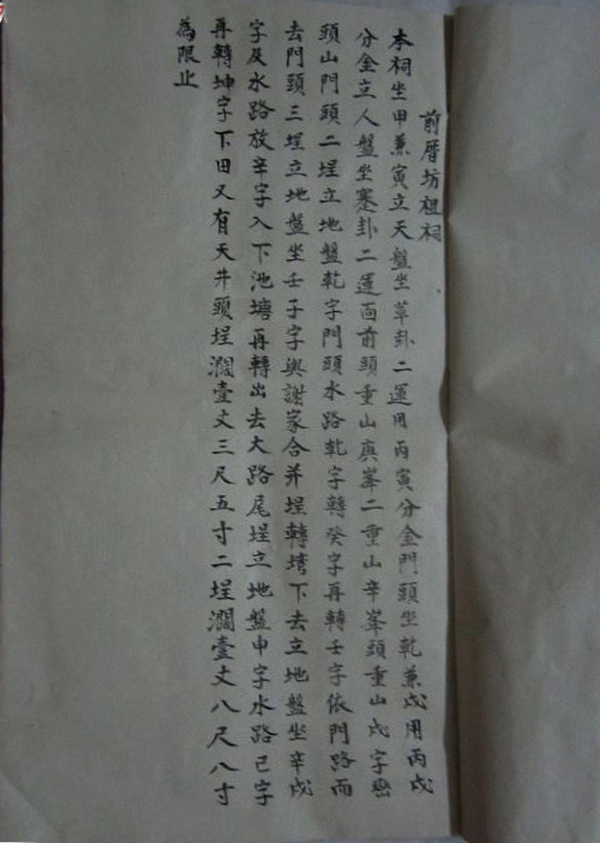 前厝坊祖祠
本祠坐甲兼寅立天盤坐革卦二運用丙寅分金門頭坐乾兼戌用丙戌
分金立人盤坐蹇卦二運面前頭重山庚峯二重山辛峯頭重山戌字巒
頭山門頭二埕立地盤乾字門頭水路乾字轉癸字再轉壬字依門路而
去門頭三埕立地盤坐壬子字與謝家合并埕轉塆下去立地盤坐辛戌
字及水路放辛字入下池塘再轉出去大路尾埕立地盤申字水路己字
再轉坤字下田又有天井頭埕濶壹丈三尺五寸二埕濶壹丈八尺八寸
為限止